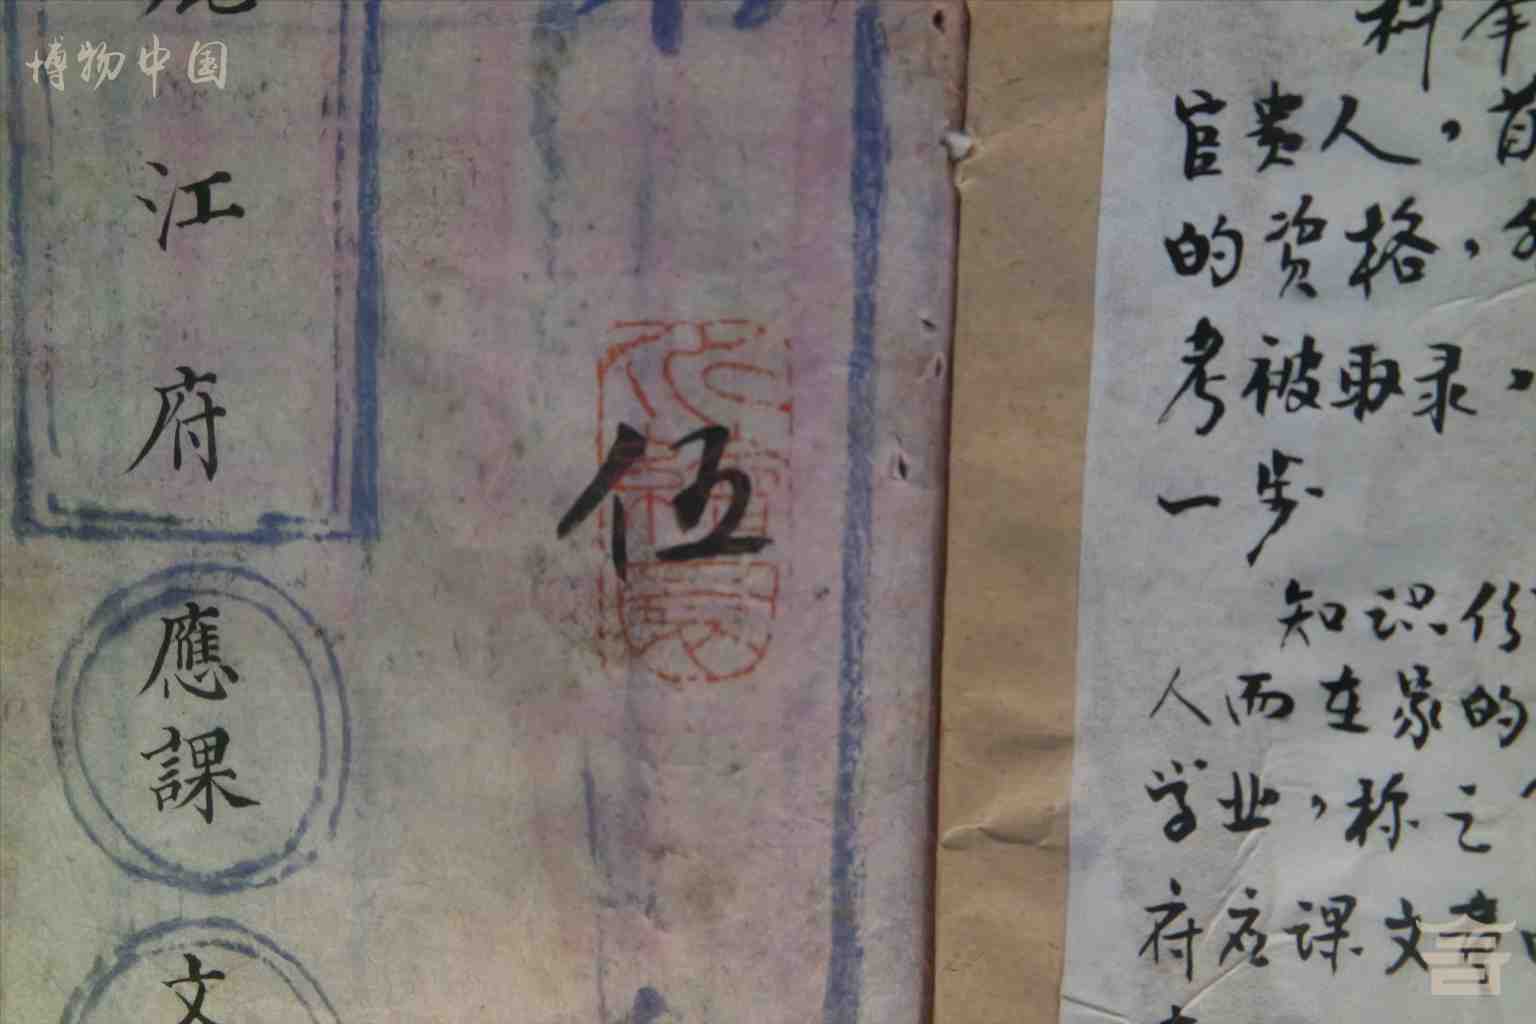 博物中国
江府
應課
文
伍
科举
官贵人，首
的资格，
考被取录，
一步
知识份
人而在家的
学业，称之
府应课文考